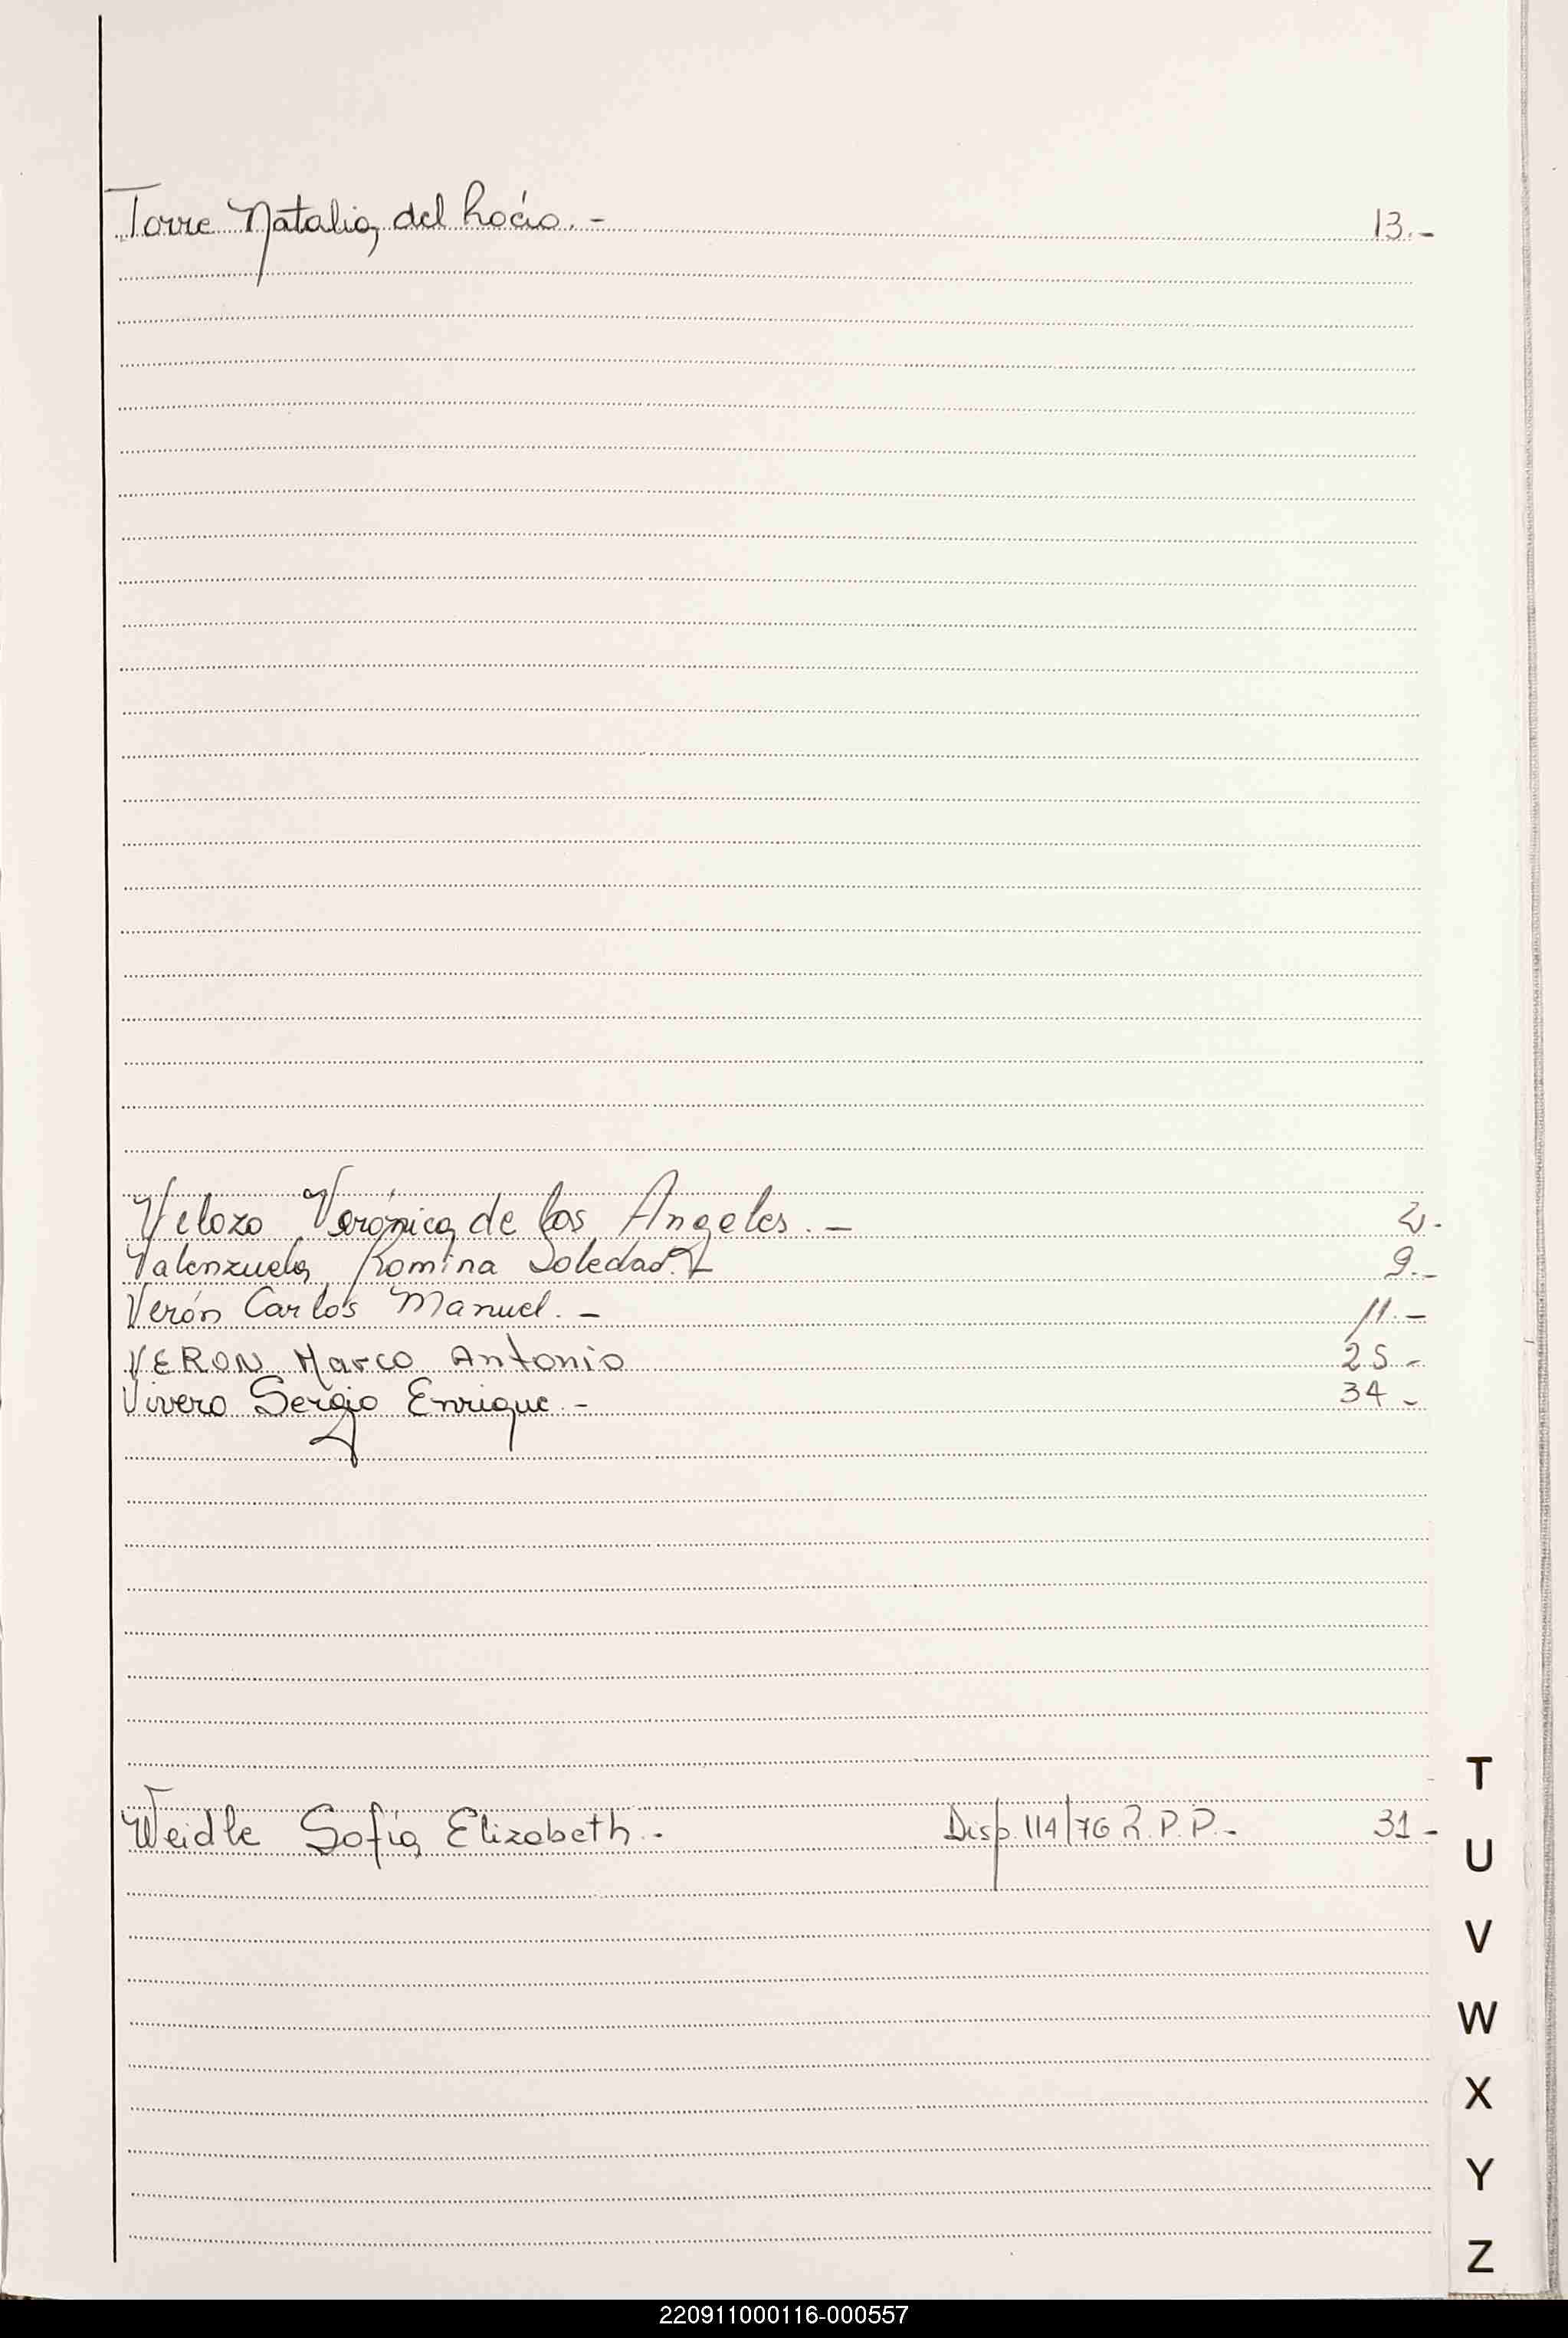 Torre Natalia del Rocío.- 13.-
Velozo Verónica de los Angeles.- 2.-
Valenzuela Romina Soledad.- 9.-
Verón Carlos Manuel.- 11.-
VERON Marco Antonio 25.-
Vivero Sergio Enrique.- 34-
Weidle Sofía Elizabeth.- Disp. 114/76 R.P.P.- 31-
T
U
V
W
X
Y
Z
220911000116-000557